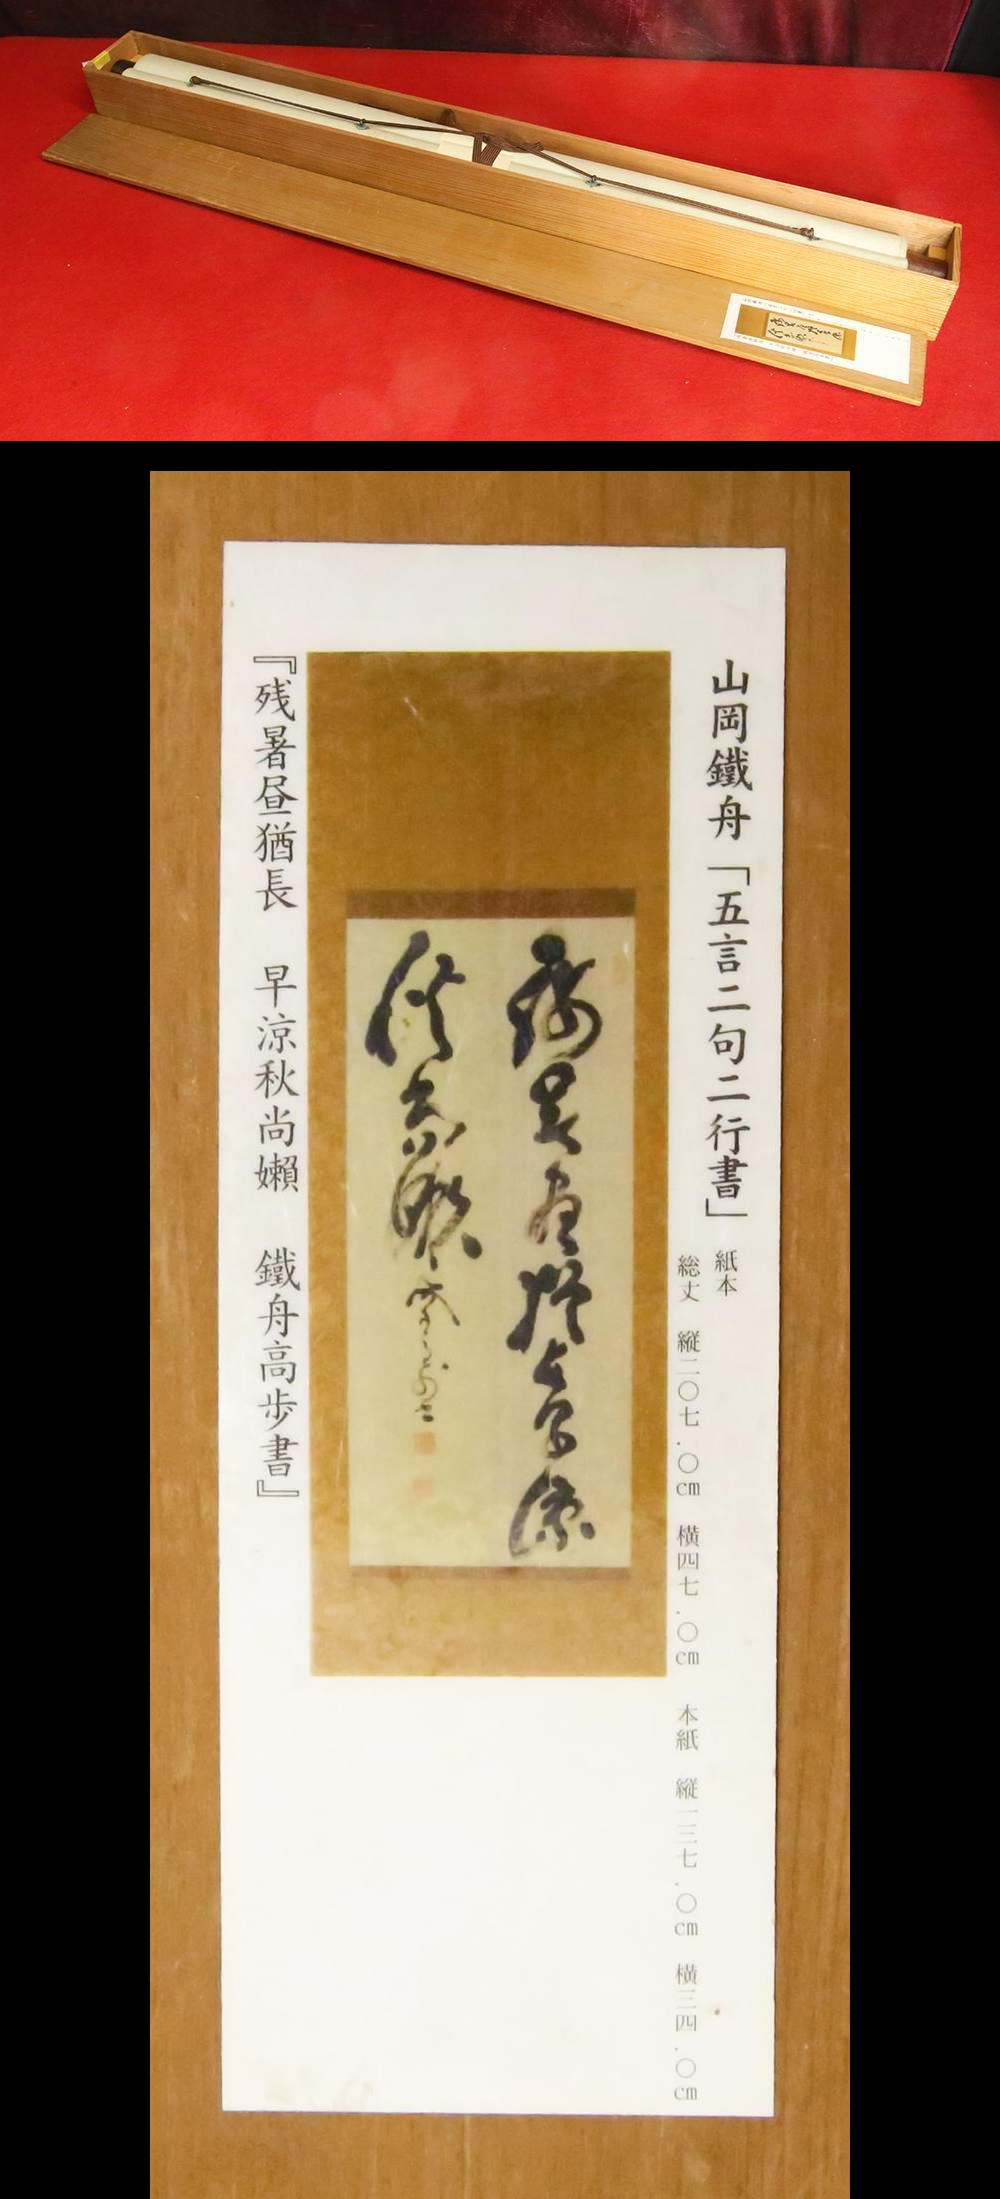 山岡鐵舟「五言二句二行書」
紙本
総丈 縦二〇七.〇cm 横四七.〇cm 本紙 縦一三七.〇cm 横三四.〇cm
『残暑昼猶長 早涼秋尚嬾 鐵舟高歩書』